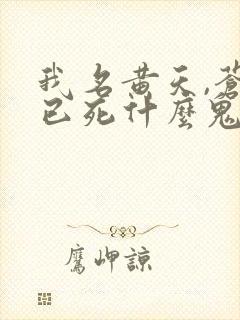 我名黄天,蒼
已死什麼鬼
鷹岬諒